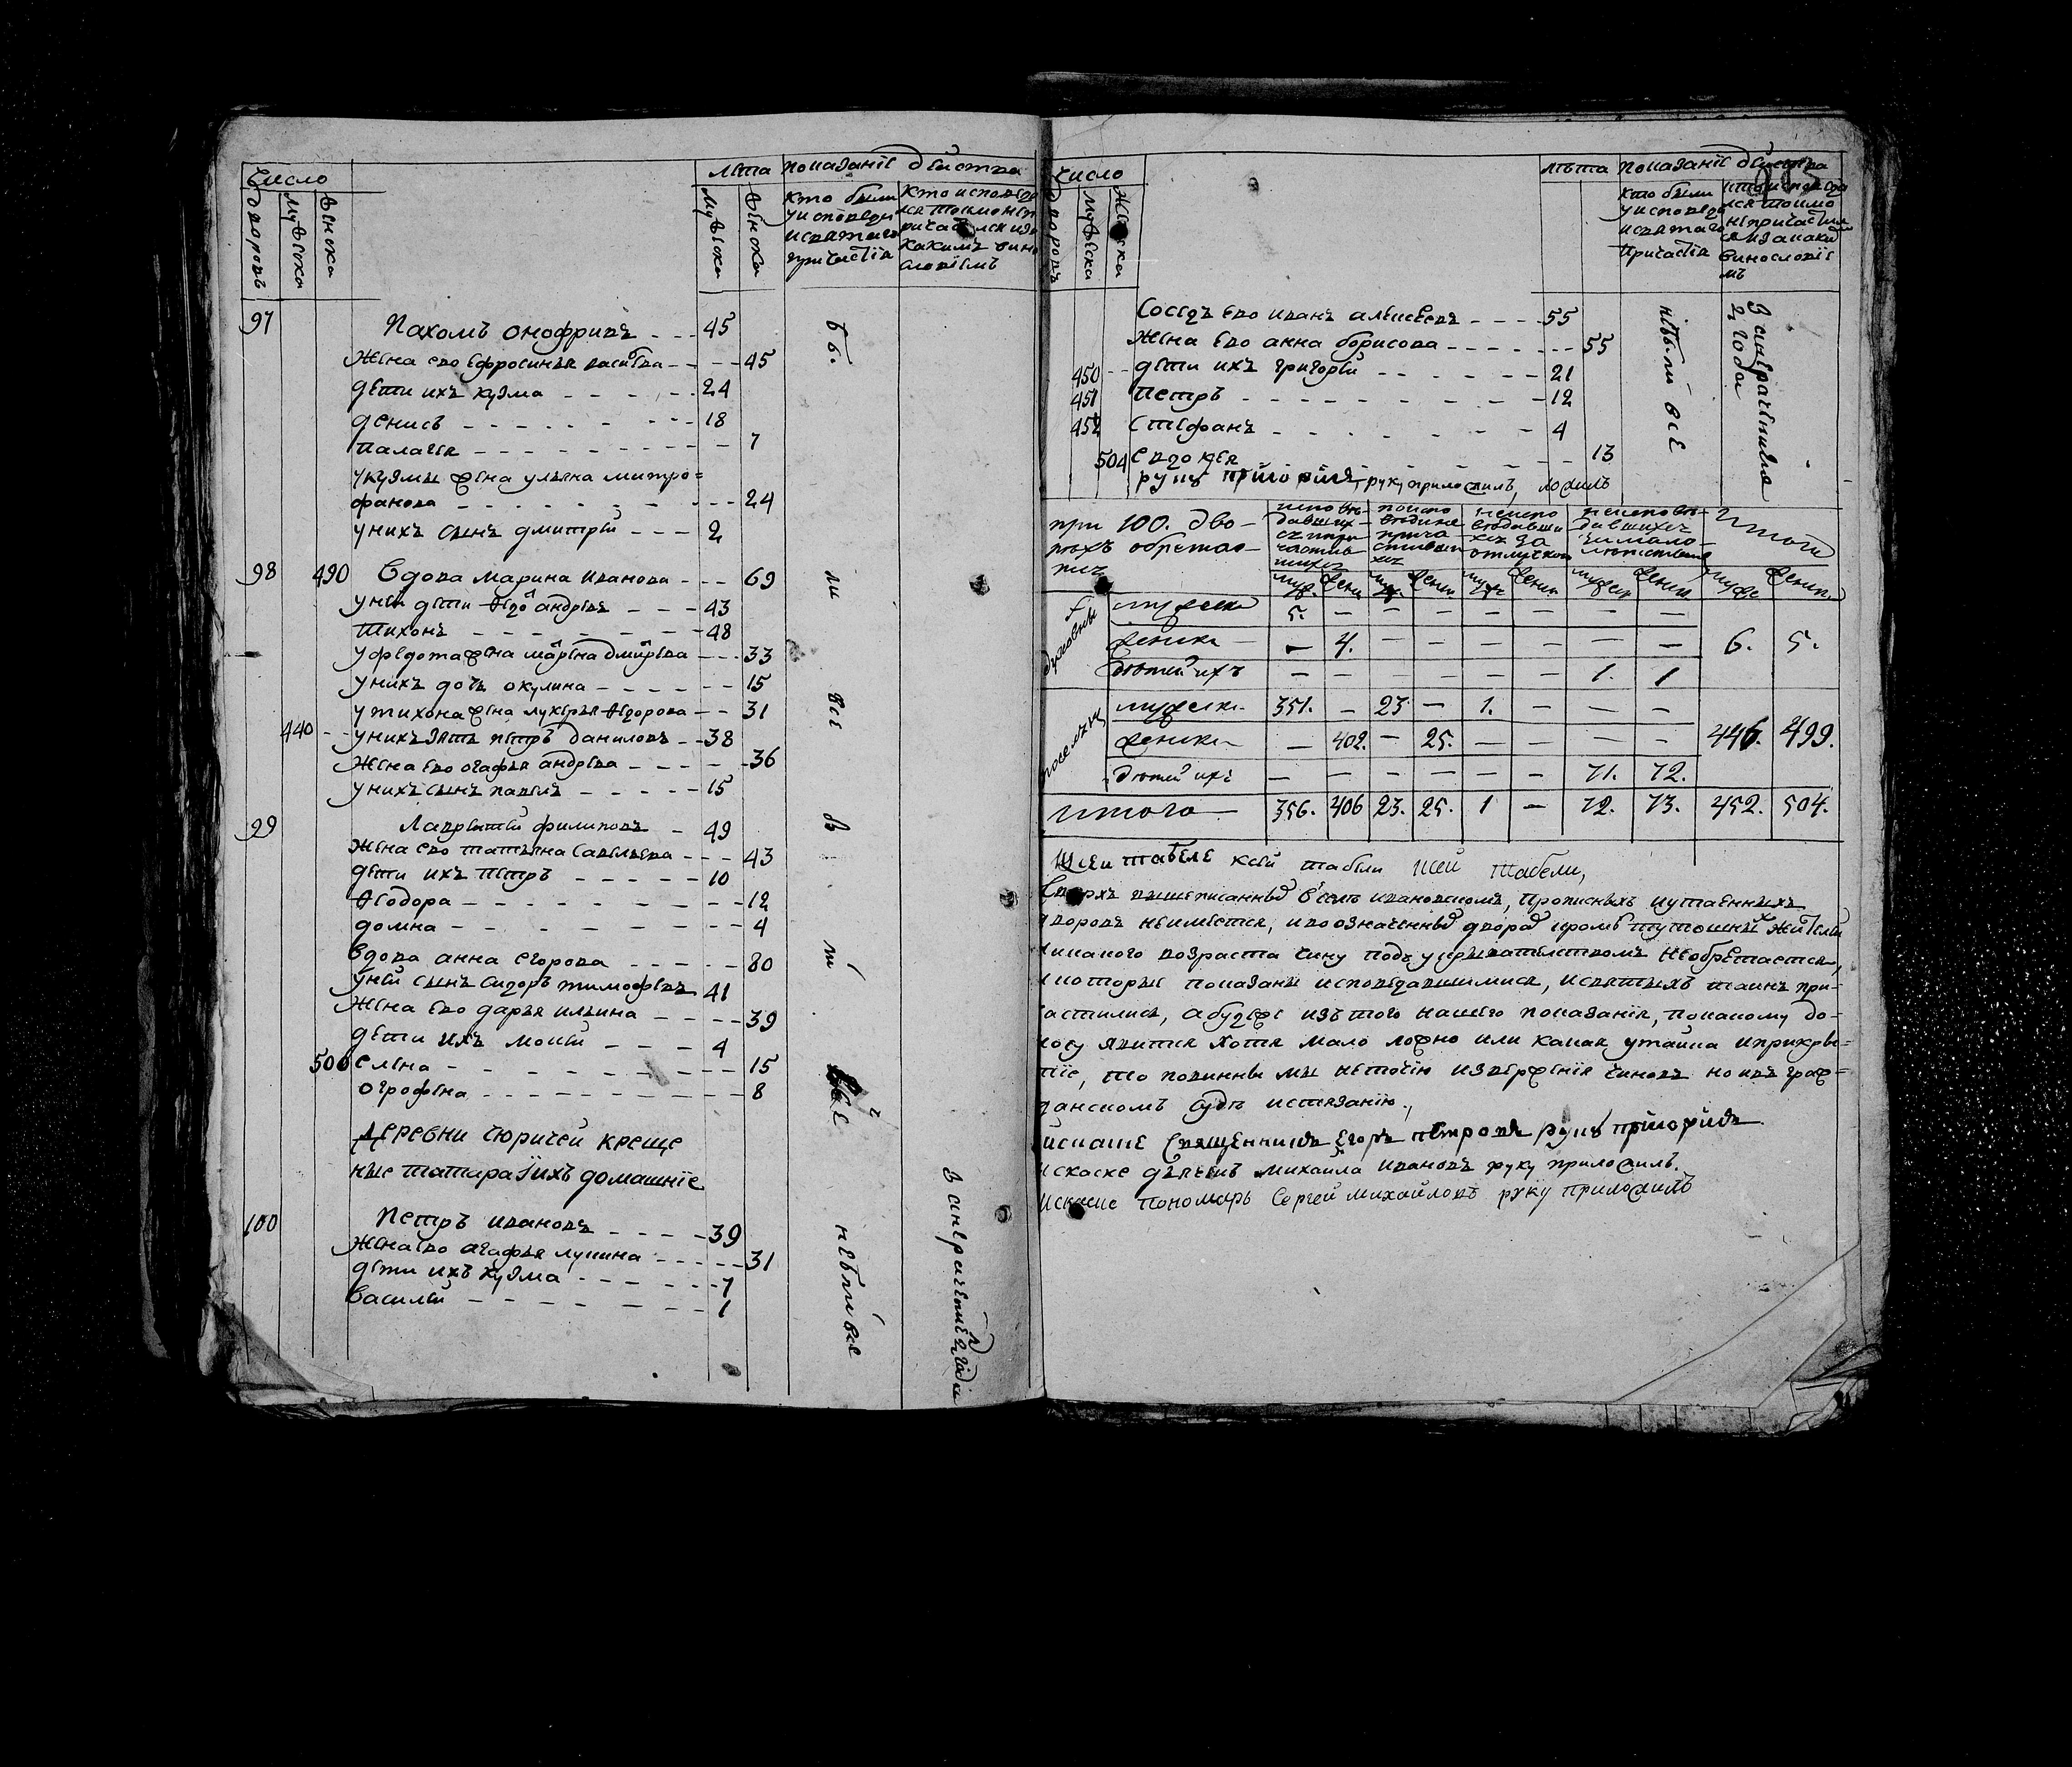 Число
лѣта показаніе дѣйства
дворовъ мужеска женска
мужеска женска
кто были у исповеди и святаго причастія
97 Пахомъ онофриевъ 45
жена ево ефросинья васильева 45
дети ихъ кузма 24
денисъ 18
палагея 7
у кузмы жена ульяна митро=
фанова 24
у нихъ сынъ дмитрей 2
98 490 вдова марина иванова 69
у ней дети ѳедотъ андреевъ 43
тихонъ 48
у федота жена марина дмитрева 33
у нихъ дочь окулина 15
у тихона жена лукерья ѳедорова 31
440 у нихъ зять петръ даниловъ 38
жена ево огафья андреева 36
у нихъ сынъ павелъ 15
99 Лаврентей филиповъ 49
жена ево татьяна савельева 43
дети ихъ петръ 10
ѳеодора 12
домна 4
вдова анна егорова 80
у ней сынъ сидоръ тимофеевъ 41
жена ево дарья ильина 39
дети ихъ мосей 4
500 елена 15
огрофена 8
деревни чюричей креще
ные татара и ихъ домашніе
100 Петръ ивановъ 39
жена ево агафья лукина 31
дети ихъ кузма 7
василей 1
небыли все
Число
лѣта показаніе дѣйства
дворовъ мужеска женска
кто были у исповеди и святаго причастія
соседъ ево иванъ алексеевъ 55
жена ево анна борисова 55
450 дети ихъ григорей 21
451 петръ 12
452 стефанъ 4
504 евдокея 13
руку приложилъ, руку приложилъ, ложилъ
при 100. дво-
рахъ обретае-
тся
исповѣдавшихся и причастившихся
неисповѣдавшихся за отлучкою
неисповѣдавшихся за малолетствомъ
Итого
муж. женск. муж. женск. муж. женск. мужск женск муже женск.
духовны мужеска 5. — — — — — — —
женска — 4. — — — — — — 6. 5.
детей ихъ — — — — — — 1. 1
поселянъ мужеска 351. — 23 — 1. — — —
женска — 402. — 25. — — — — 446. 499.
детей ихъ — — — — — — 71. 72.
итого 356. 406 23. 25. 1 — 72. 73. 452. 504.
табеле ксей табели сей табели,
Сверхъ вышеписанныхъ в селе ивановскомъ, прописныхъ и утаенныхъ
дворовъ неимеется, и во означенныхъ дворахъ кроме тутошныхъ жителей
инакого возраста чину подъ укрывателствомъ необретается,
и которые показаны исповедавшимися, и святыхъ таинъ при-
частились, а буде же изъ того нашего показанія, по какому до-
носу явится хотя мало ложно или какая утайка и прикры=
тіе, то повинны мы неточію извержения чиновъ но и въ граж=
данскомъ суде истязанію.
священникъ егоръ петровъ руку приложилъ
к скаске дьячекъ михаила ивановъ руку приложилъ.
пономарь Сергей михайловъ руку приложилъ